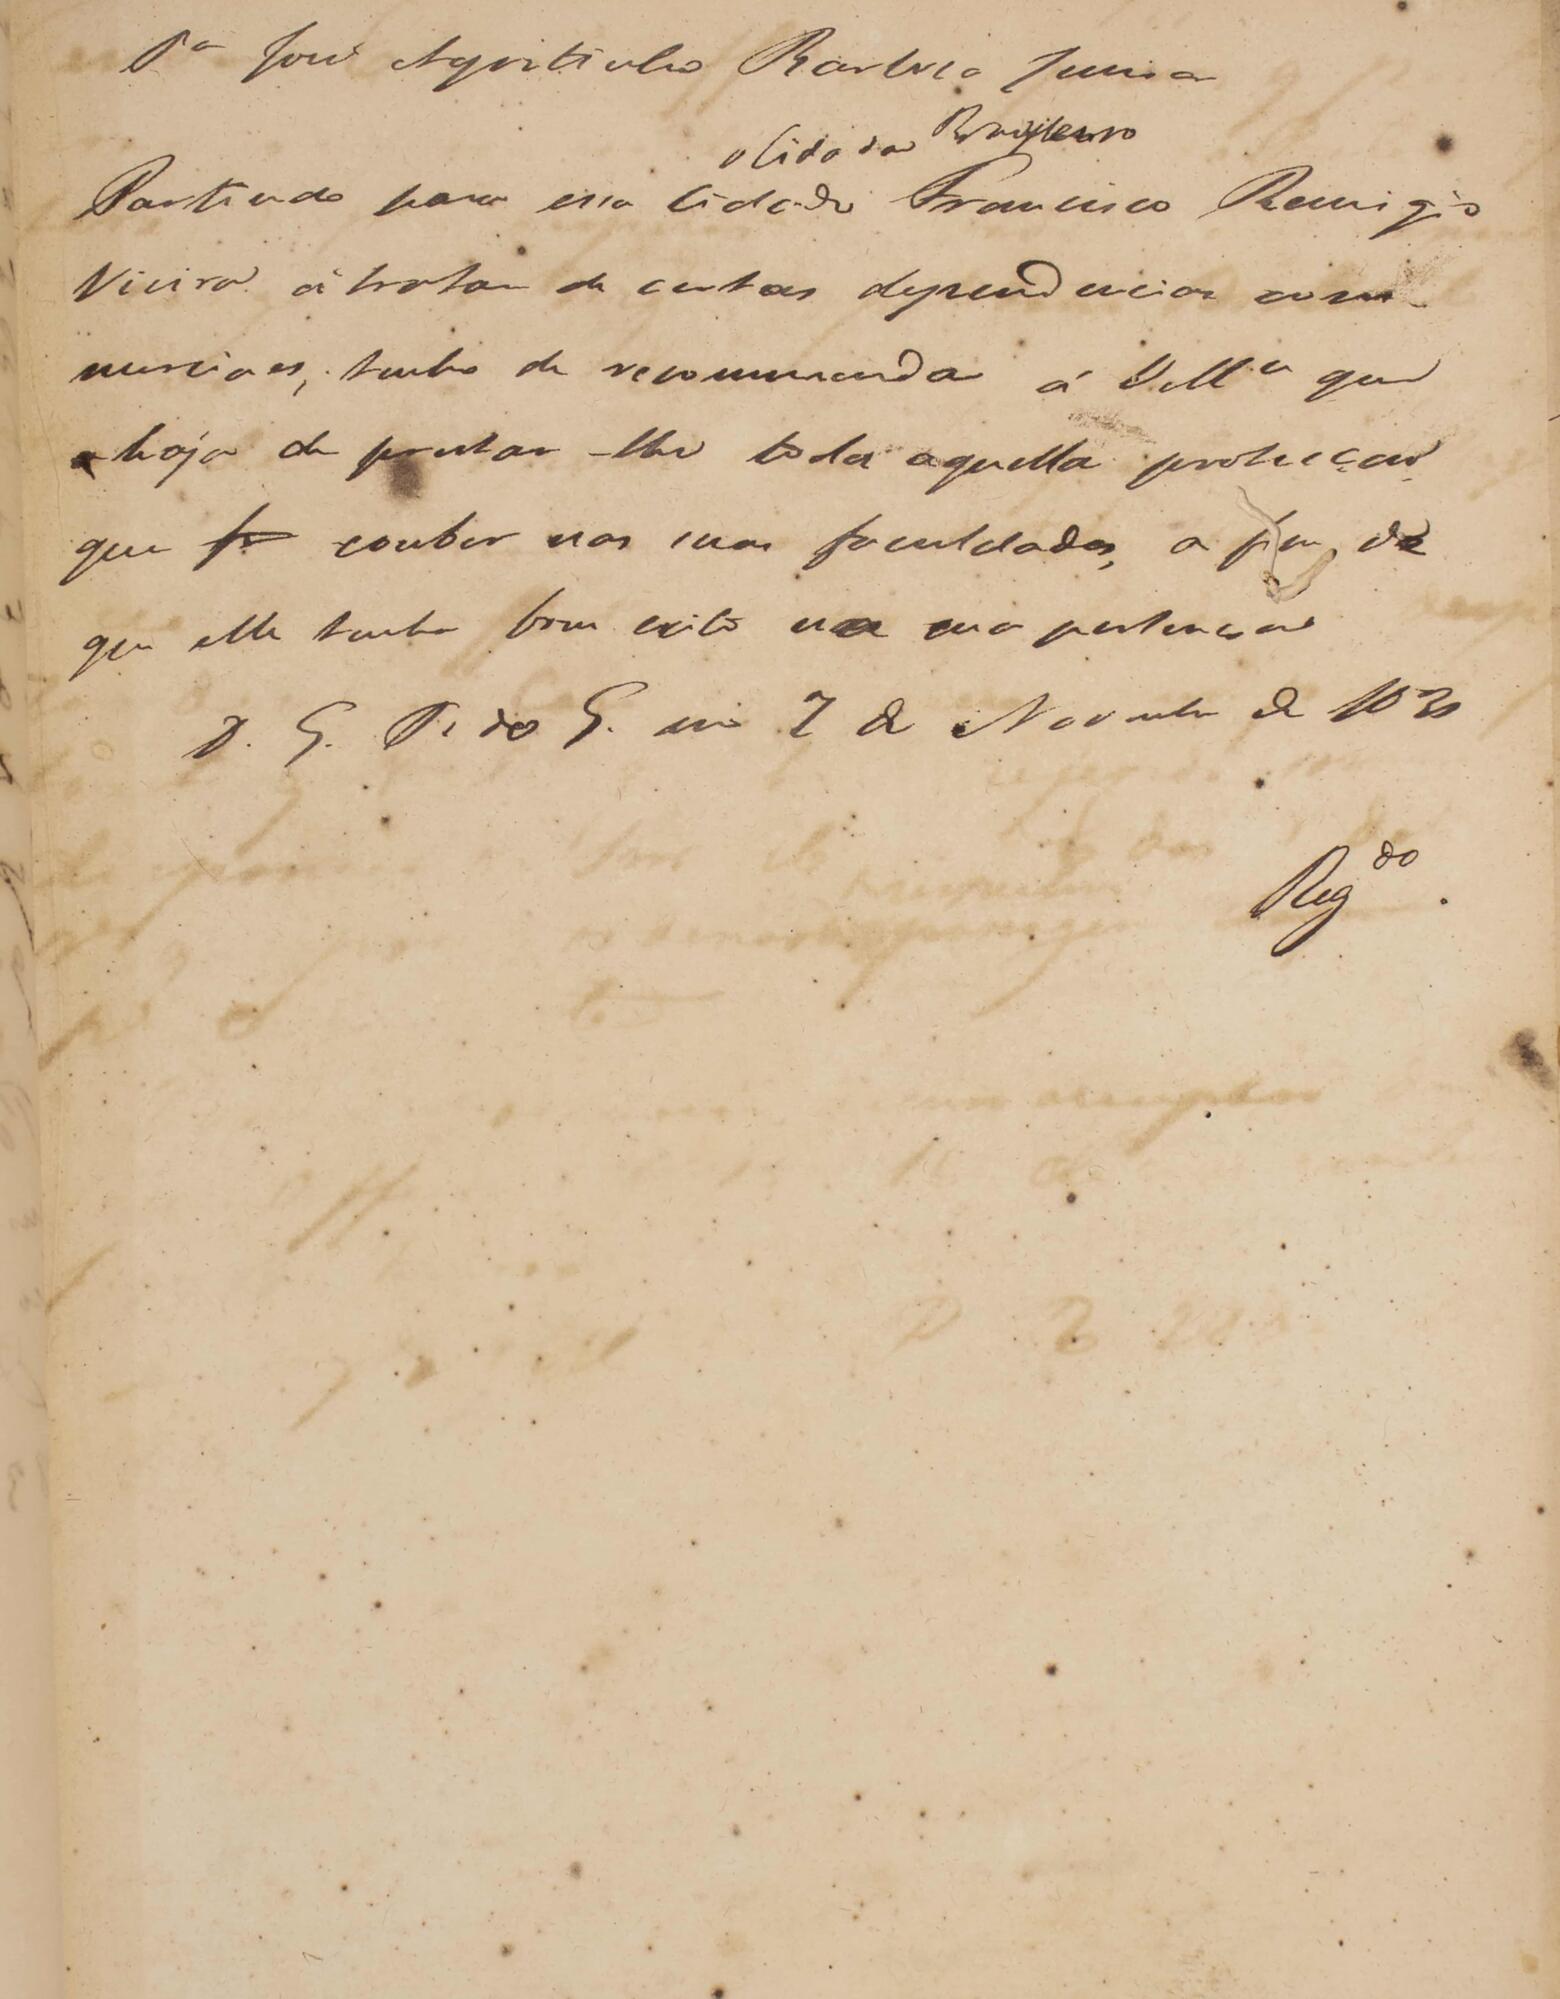 Pª José Agostinho Barbosa Junior
o Cidadão Brasileiro
Partindo para essa Cidade Francisco Remigio
Vieira á tratar de certas dependencias com-
merciaes, tenho de recommendar á VMce que
haja de prestar-lhe toda aquella protecção
que couber nas suas faculdades, a fim de
que elle tenha bom exito na sua pertenção
D. G. P. do G. em 7 de Novembro de
Regdo.